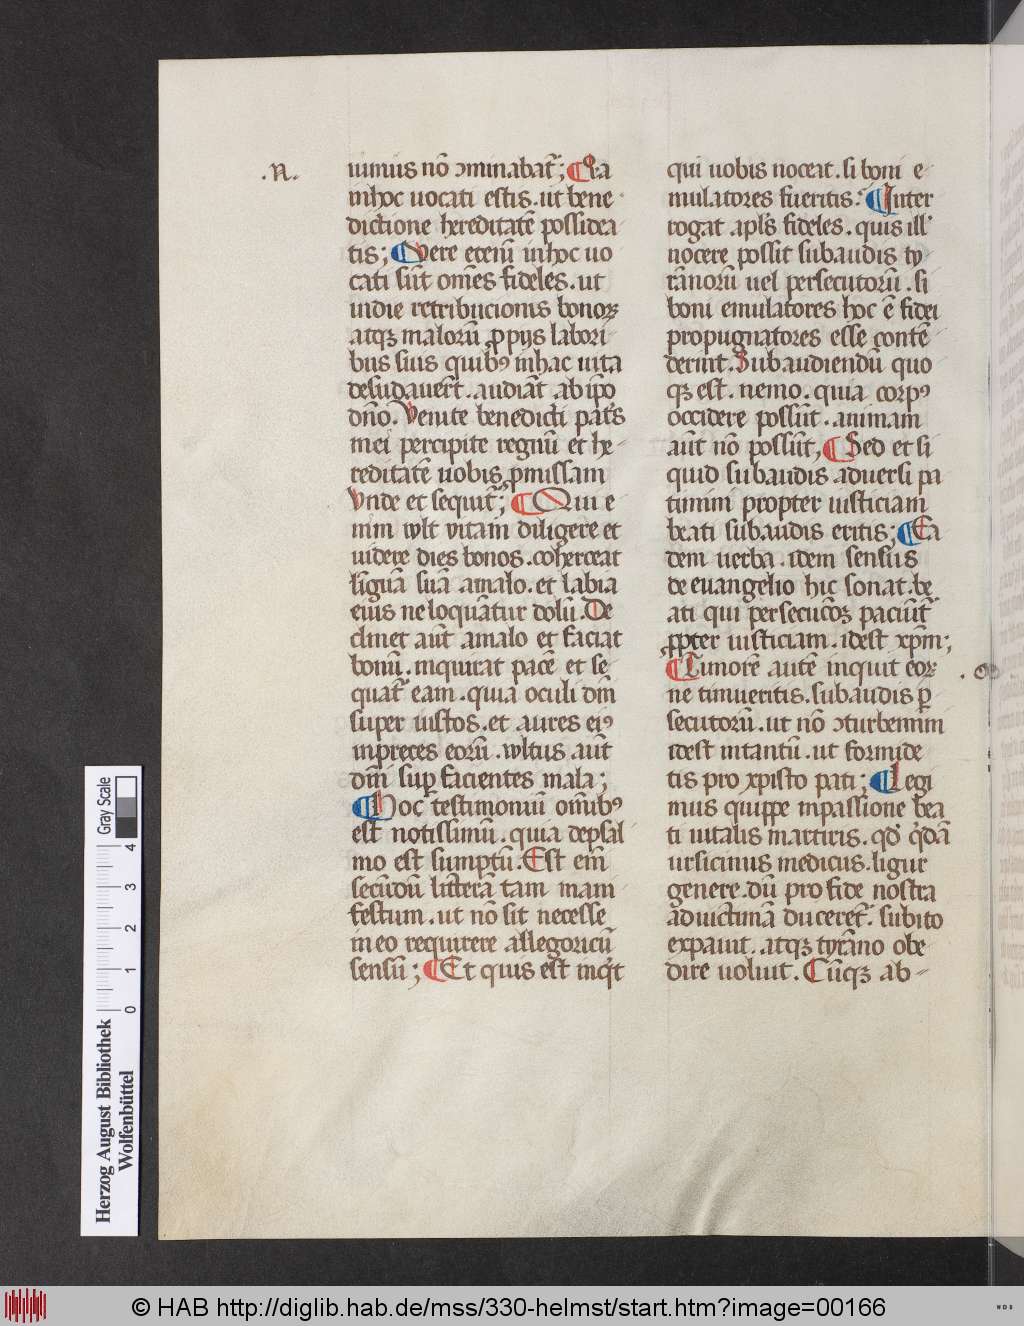 .N.
uimus nō ɔminabat᷑; ¶ Q̇a
inhoc uocati estis. ut bene
dictione hereditatē possidea
tis; ¶ Vere etenī inhoc uo
cati sūt om̄es fideles. ut
indie retribucionis bonoꝝ
atqꝫ malorū ꝓpijs labori
bus suis quibꝰ inhac uita
desudauer̄t. audiāt ab ip̄o
dn̄o. Venite benedicti pat̃s
mei percipite regnū et he-
reditatē uobis ꝓmissam
Vnde et sequit᷑; ¶ Qui e
nim wlt vitam diligere et
uidere dies bonos. coherceat
linguā suā amalo. et labia
eius ne loquātur dolū. De
clinet aūt amalo et faciat
bonū. inquirat pacē et se
quat᷑ eam. quia oculi dn̄i
super iustos. et aures eiꝰ
inpreces eorū. wltus aūt
dn̄i suꝑ facientes mala;
¶ Hoc testimoniū om̄ibꝰ
est notissimū. quia depsal
mo est sumptū. Est em̄
secūdū litterā tam mani
festum. ut nō sit necesse
in eo requirere allegoricū
sensū; ¶ Et quis est inq̇t
qui uobis noceat. si boni e-
mulatores fueritis. ¶ Inter
rogat apl̃s fideles. quis ill'
nocere possit subaudis ty
rānorū uel persecutorū. si
boni emulatores hoc ē fidei
propugnatores esse contē
derint. Subaudiendū quo
qꝫ est. nemo. quia corpꝰ
occidere possūt. animam
aūt nō possūt, ¶ Sed et si
quid subaudis aduersi pa
timini propter iusticiam
beati subaudis eritis; ¶ Ea
dem uerba. idem sensus
de euangelio hic sonat. be
ati qui persecuc̄oꝫ paciūt᷑
ꝓpter iusticiam. idest xp̄m;
¶ Timorē autē inquit eoꝝ
ne timueritis. subaudis ꝑ
secutorū. ut nō ɔturbemini
idest intantū. ut formide
tis pro xpisto pati; ¶ Legi
mus quippe inpassione bea
ti uitalis martiris. qd̓ q̇dā
ursicinus medicus. ligur
genere. dū pro fide nostra
aduictimā duceret᷑. subito
expauit. atqꝫ tyrāno obe
dire uoluit. Cūqꝫ ab-
Herzog August Bibliothek
Wolfenbüttel
Gray Scale
0 1 2 3 4
© HAB http://diglib.hab.de/mss/330-helmst/start.htm?image=00166